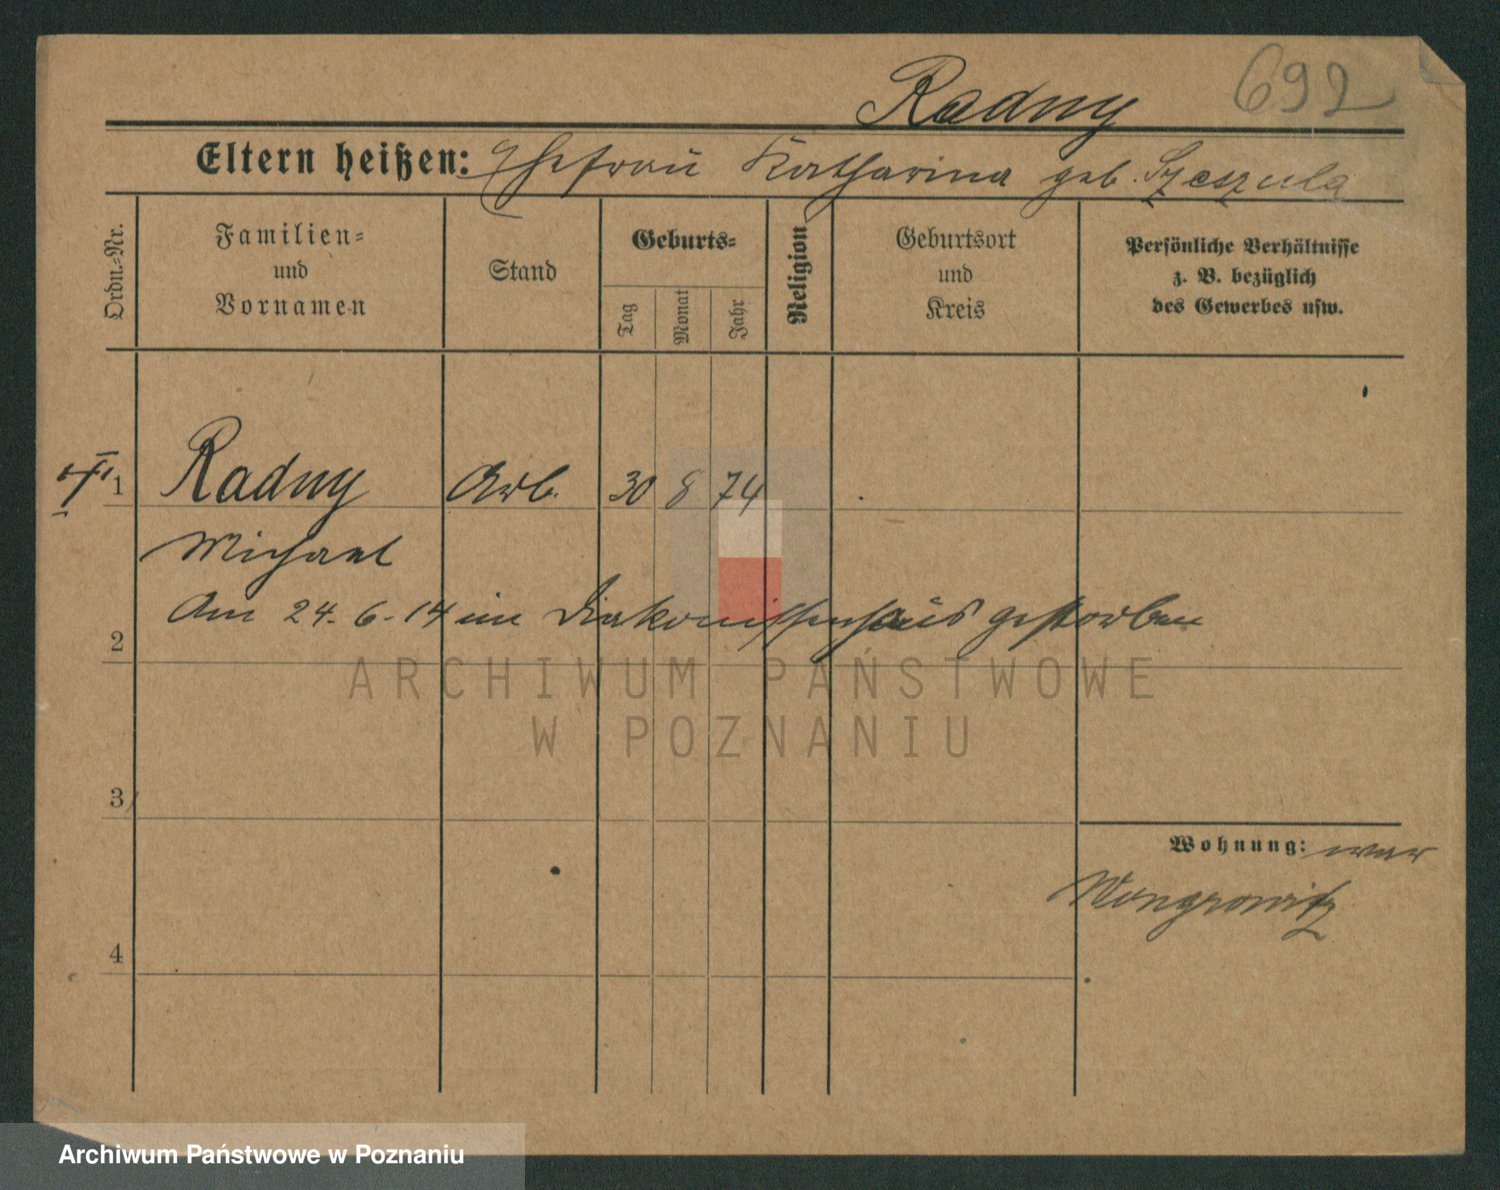 Radny 692
Eltern heißen: Ehefrau Katharina geb. Szeszula
Ordn.-Nr.
Familien-
und
Vornamen
Stand
Geburts-
Tag
Monat
Jahr
Religion
Geburtsort
und
Kreis
Persönliche Verhältnisse
z. B. bezüglich
des Gewerbes usw.
1 Radny Arb. 30 8 74
Michael
Am 24.6.14 im Diakonissenhaus gestorben
2
ARCHIWUM PAŃSTWOWE
W POZNANIU
3
Wohnung: war
Wongrowitz
4
Archiwum Państwowe w Poznaniu